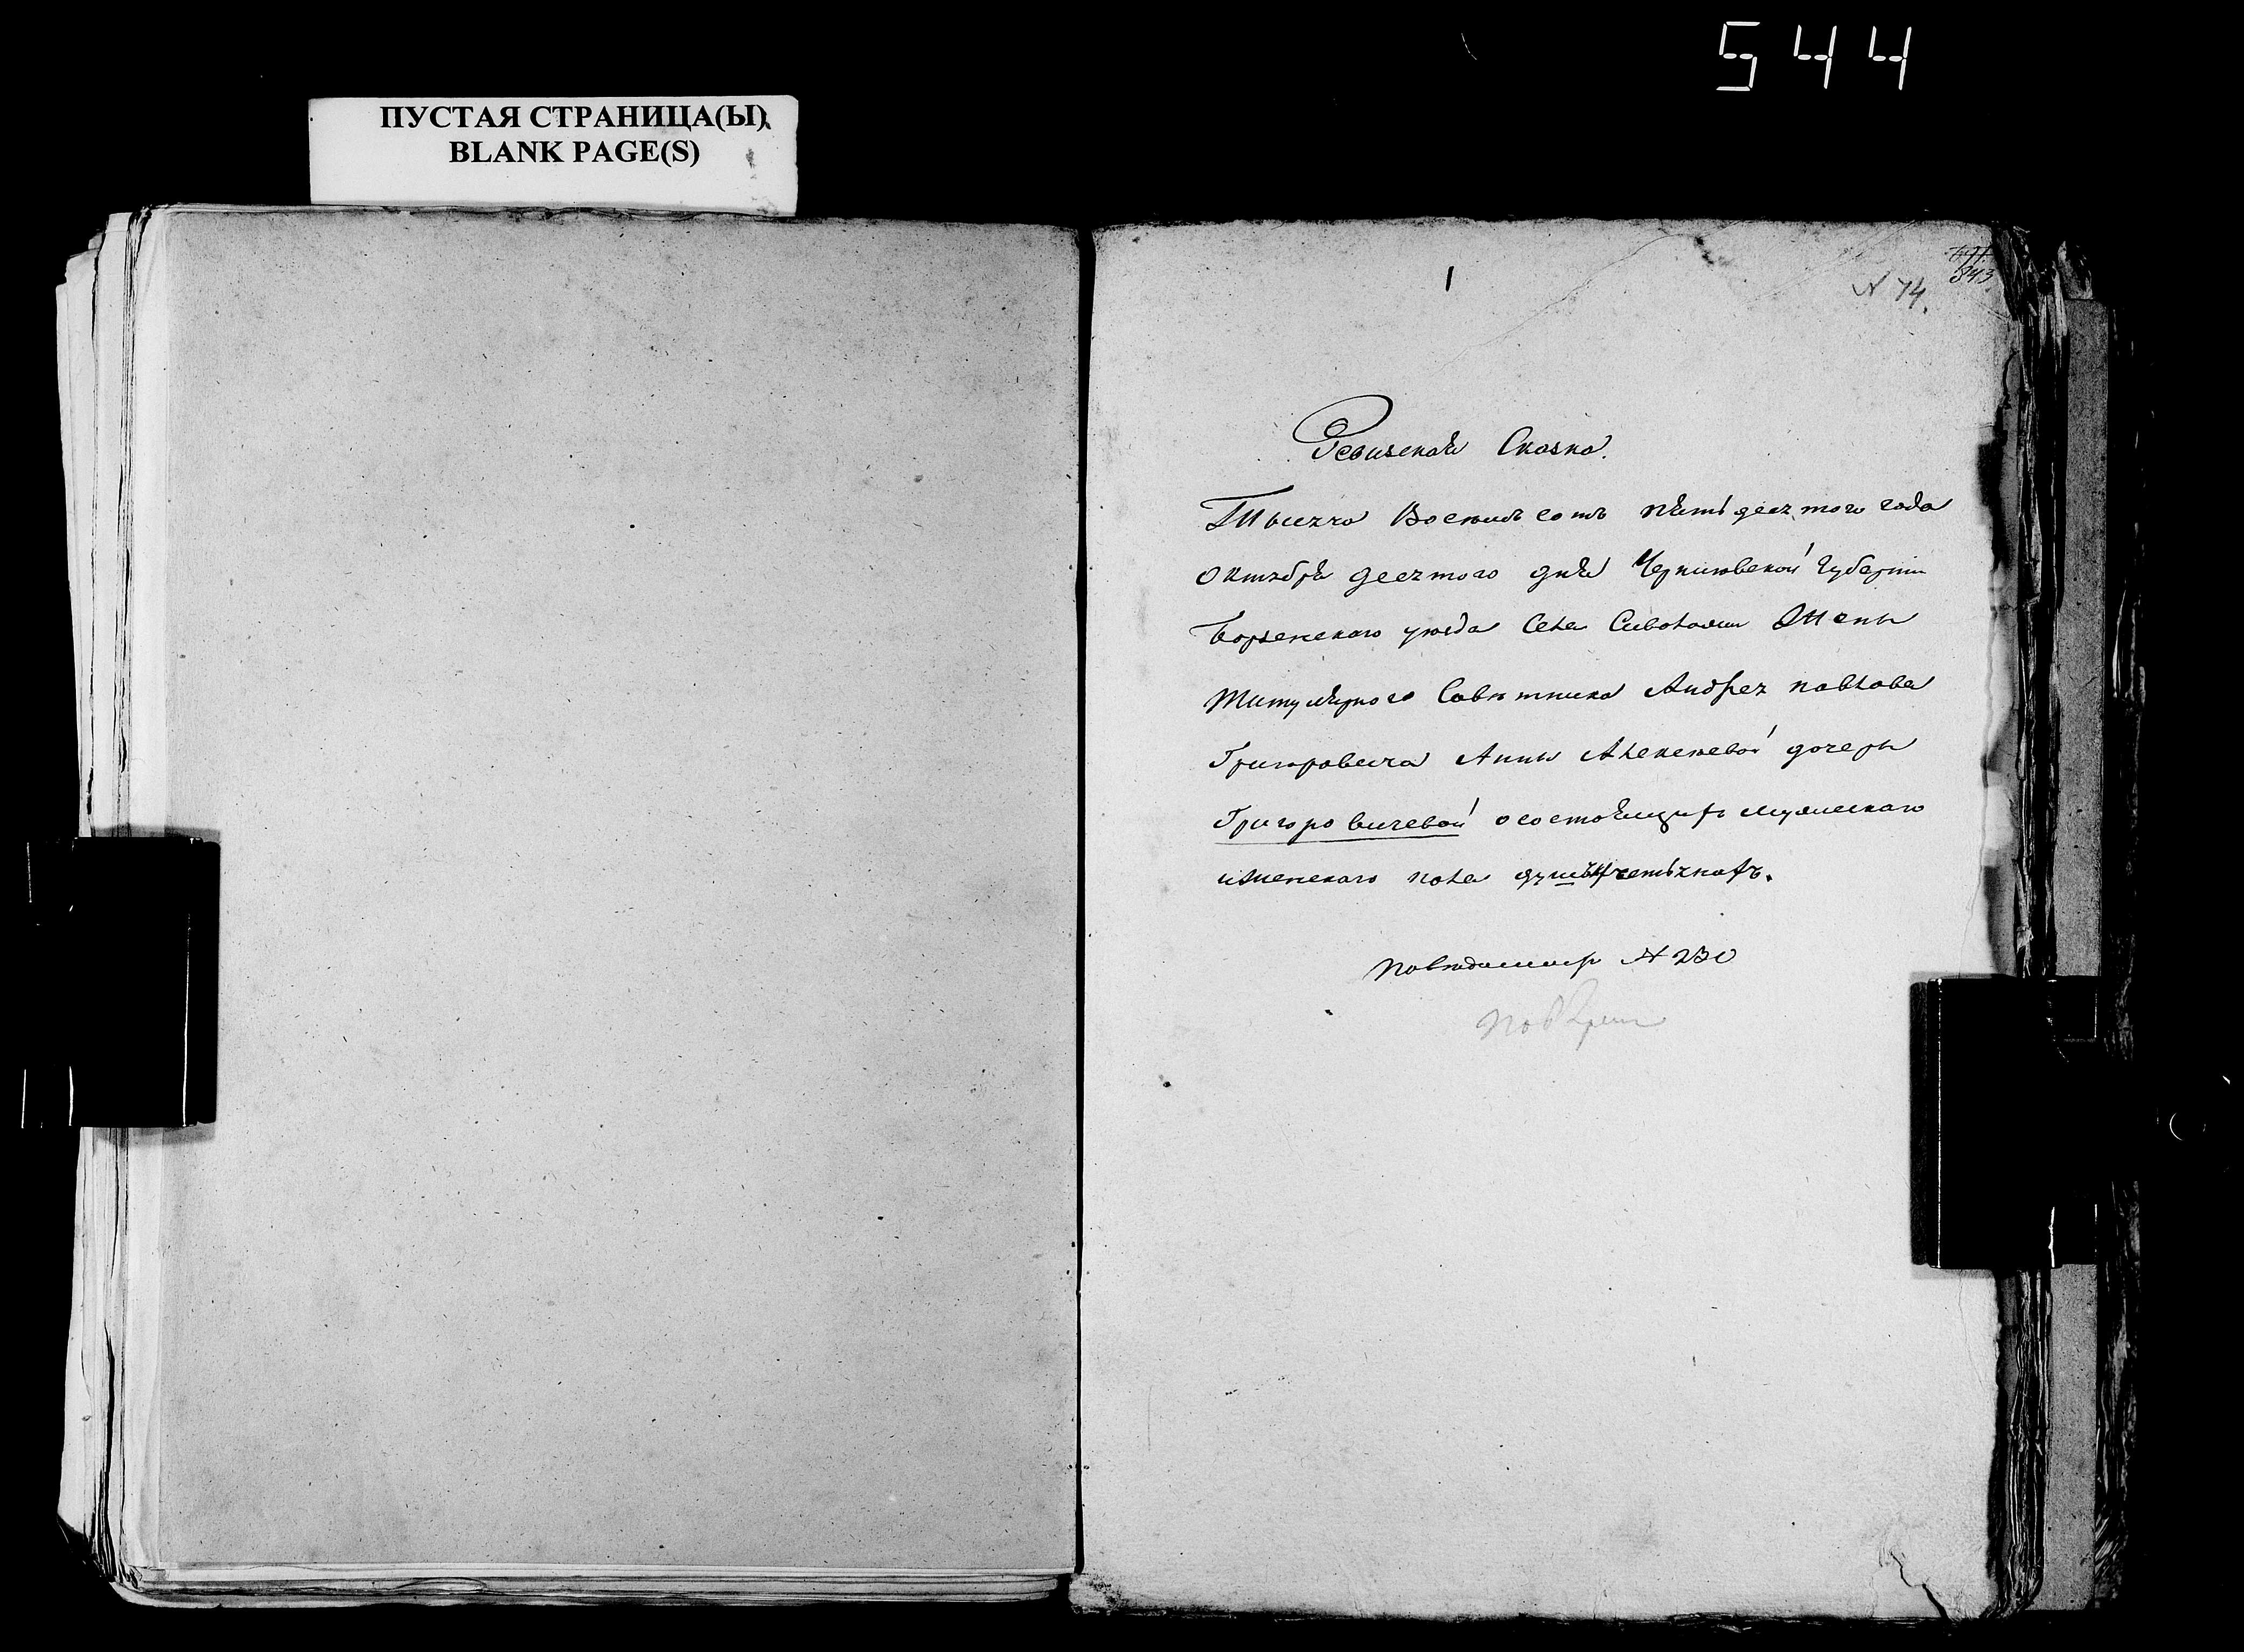 544
ПУСТАЯ СТРАНИЦА(Ы)
BLANK PAGE(S)
1
543
N 74.
Ревизская Сказка.
Тысяча Восемь сотъ пятьдесятого года
Октября десятого дня Черниговской Губерніи
Борзенского уѣзда Села Сиволожи Жены
Титулярного Совѣтника Андрея Павлова
Григоровича Анны Алексѣевой дочери
Григоровичевой о состоящихъ мужескаго
и женскаго пола крестьянахъ.
По вѣдомости N 230